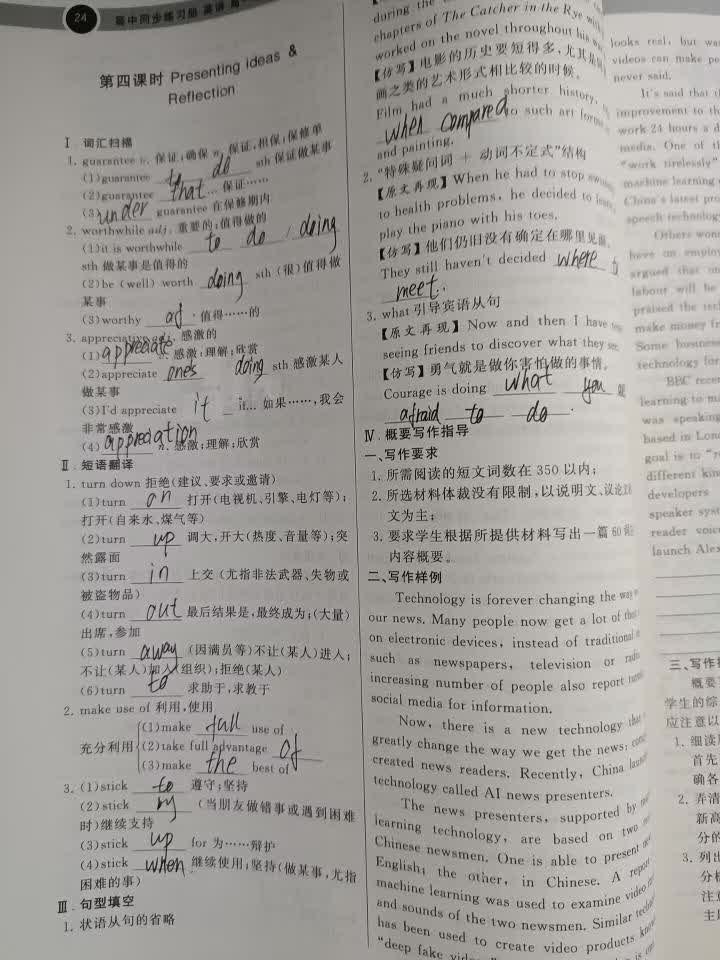 24
高中同步练习册 英语
第四课时 Presenting ideas &
Reflection
Ⅰ. 词汇扫描
1. guarantee v. 保证;确保 n. 保证,担保;保修单
(1)guarantee to do sth 保证做某事
(2)guarantee that … 保证……
(3)under guarantee 在保修期内
2. worthwhile adj. 重要的;值得做的
(1)it is worthwhile to do / doing
sth 做某事是值得的
(2)be (well) worth doing sth (很)值得做
某事
(3)worthy of . 值得……的
3. appreciative adj. 感激的
(1) appreciate v. 感激;理解;欣赏
(2)appreciate one's doing sth 感激某人
做某事
(3)I'd appreciate it it… 如果……,我会
非常感激
(4) appreciation n. 感激;理解;欣赏
Ⅱ. 短语翻译
1. turn down 拒绝(建议、要求或邀请)
(1)turn on 打开(电视机、引擎、电灯等);
打开(自来水、煤气等)
(2)turn up 调大,开大(热度、音量等);突
然露面
(3)turn in 上交 (尤指非法武器、失物或
被盗物品)
(4)turn out 最后结果是,最终成为;(大量)
出席,参加
(5)turn away (因满员等)不让(某人)进人;
不让(某人)加入(组织);拒绝(某人)
(6)turn to 求助于,求教于
2. make use of 利用,使用
充分利用
(1)make full use of
(2)take full advantage of
(3)make the best of
3. (1)stick to 遵守;坚持
(2)stick by (当朋友做错事或遇到困难
时)继续支持
(3)stick up for 为……辩护
(4)stick when 继续使用;坚持(做某事,尤指
困难的事)
Ⅲ. 句型填空
1. 状语从句的省略
during the
chapters of The Catcher in the Rye with
worked on the novel throughout his
【仿写】电影的历史要短得多,尤其是
画之类的艺术形式相比较的时候。
Film had a much shorter history,
when compared to such art forms
and painting.
2. “特殊疑问词 + 动词不定式”结构
【原文再现】When he had to stop
to health problems, he decided to
play the piano with his toes.
【仿写】他们仍旧没有确定在哪里见面。
They still haven't decided where to
meet.
3. what 引导宾语从句
【原文再现】Now and then I have
seeing friends to discover what they
【仿写】勇气就是做你害怕做的事情。
Courage is doing what you
afraid to do.
Ⅳ. 概要写作指导
一、写作要求
1. 所需阅读的短文词数在 350 以内;
2. 所选材料体裁没有限制,以说明文、议论
文为主;
3. 要求学生根据所提供材料写出一篇 60
内容概要。
二、写作样例
Technology is forever changing the way
our news. Many people now get a lot of
on electronic devices, instead of traditional
such as newspapers, television or
increasing number of people also report
social media for information.
Now, there is a new technology that
greatly change the way we get the news:
created news readers. Recently, China
technology called AI news presenters.
The news presenters, supported by
learning technology, are based on two
Chinese newsmen. One is able to present
English; the other, in Chinese. A report
machine learning was used to examine video
and sounds of the two newsmen. Similar
has been used to create video products
“deep fake
looks real, but
videos can make
never said.
It's said that
improvement to th
work 24 hours a d
media. One of
“work tirelessly”
machine learning
China's latest
speech technology
Others
have on
argued that
labour will be
praised the
make money
Some business
technology for
BBC
learning to
was speaking
based in Lon
goal is to
different kin
developers
speaker sys
reader voic
launch Alex
三、写作
概要
学生的综
应注意以
1. 细读
首先
确各
2. 弄清
新高
分的
3. 列出
分
注意
主